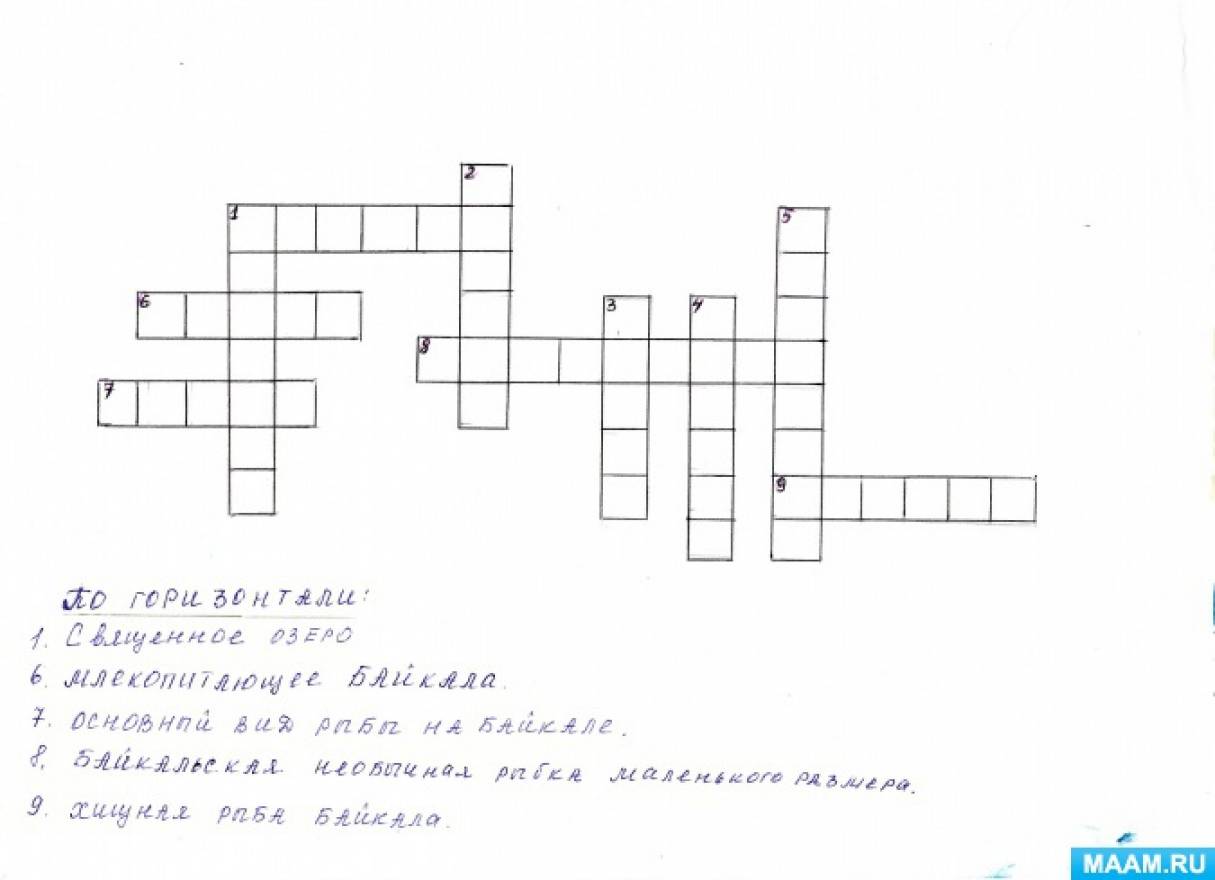 2
1
5
6
3
4
8
7
9
По горизонтали:
1. Священное озеро
6. млекопитающее Байкала.
7. основный вид рыбы на Байкале.
8. Байкальская необычная рыбка маленького размера.
9. хищная рыба Байкала.
MAAM.RU